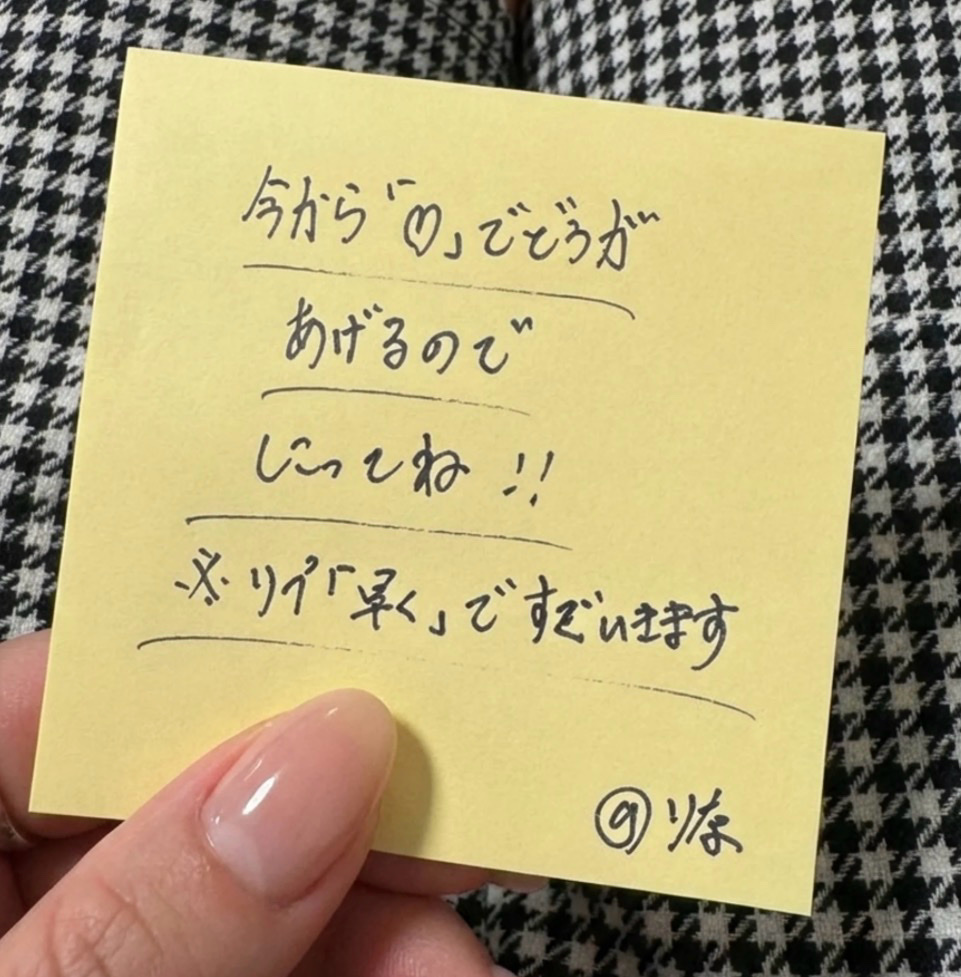 今から「♡」でどうが
あげるので
しこってね!!
※リプ「早く」ですぐいきます
@りな